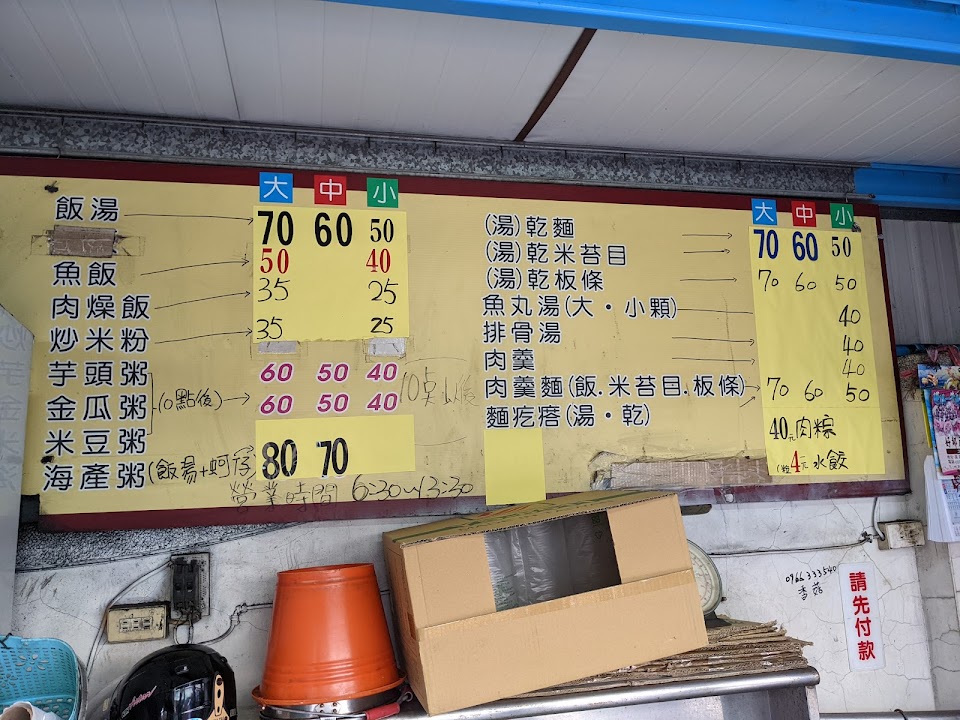 大 中 小
飯湯 70 60 50
魚飯 50 40
肉燥飯 35 25
炒米粉 35 25
芋頭粥 60 50 40
金瓜粥 (10點後) 60 50 40 10點以後
米豆粥
海產粥(飯湯+蚵仔) 80 70
營業時間 6:30~13:30
大 中 小
(湯)乾麵 70 60 50
(湯)乾米苔目
(湯)乾板條 70 60 50
魚丸湯(大・小顆) 40
排骨湯 40
肉羹 40
肉羹麵(飯.米苔目.板條) 70 60 50
麵疙瘩(湯・乾)
40元肉粽
4元水餃
0966333540
香菇
請先付款